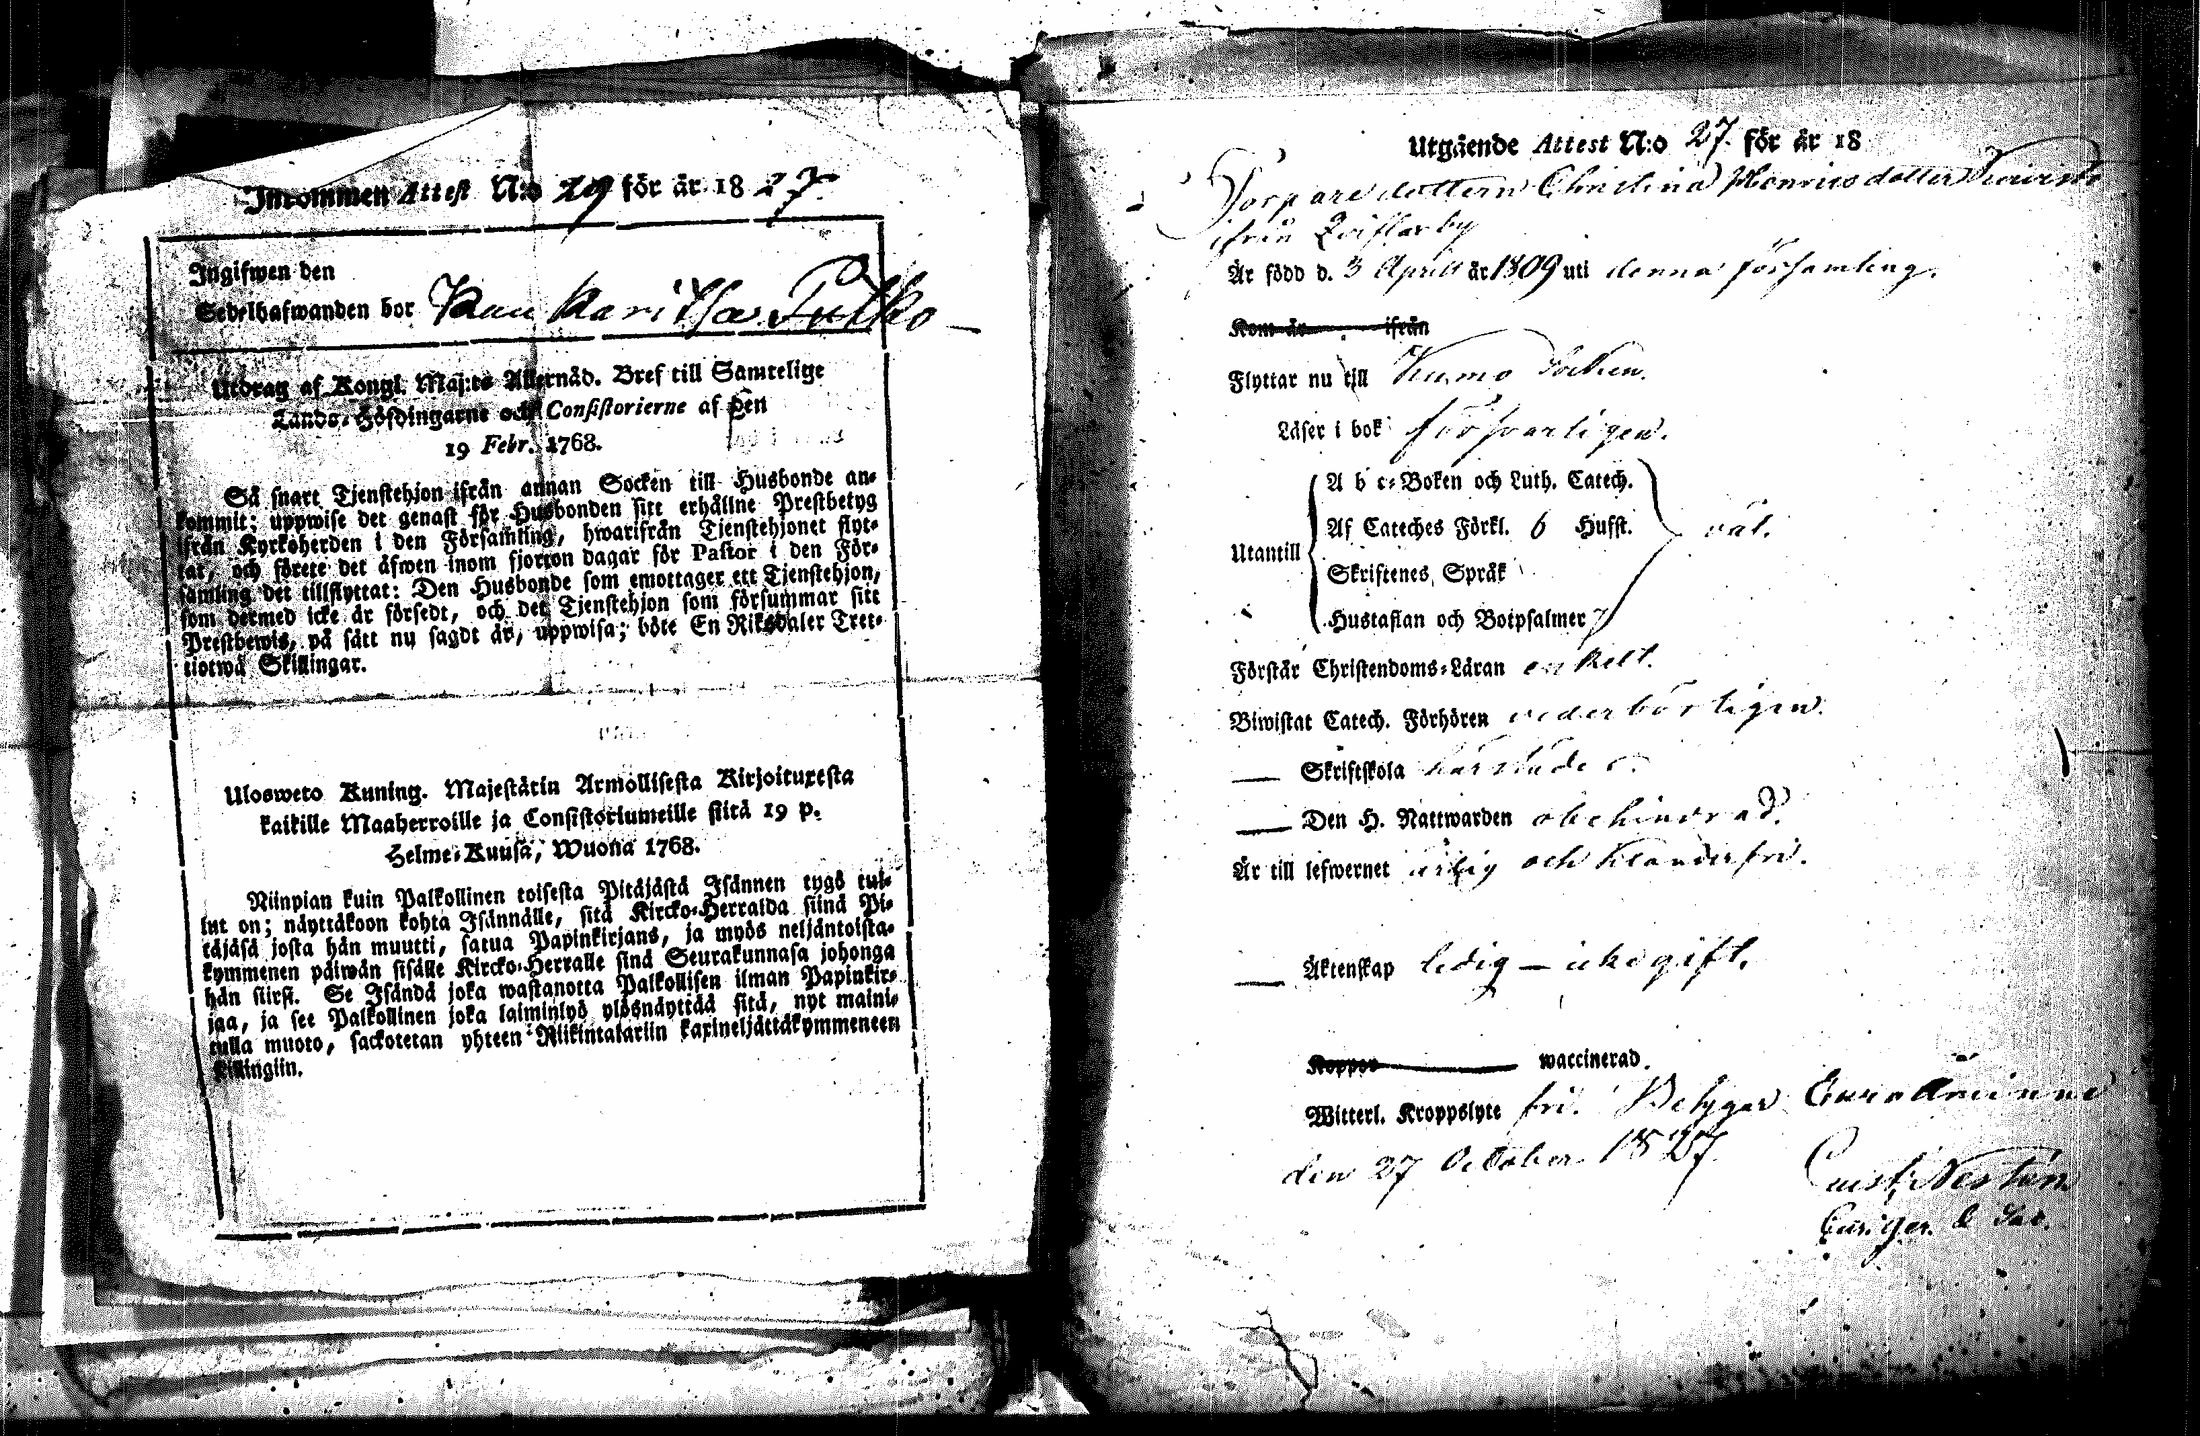 Inkommen Attest N:o 29 för år 1827.
Ingifwen den
Sedelhafwanden bor Kauttaritsa Pulko
Utdrag af Kongl. Maj:ts Allernåd. Bref till Samtelige
Lands-Höfdingarne och Consistorierne af den
19 Febr. 1768.
Så snart Tjenstehjon ifrån annan Socken till Husbonde an-
kommit; uppwise det genast för Husbonden sitt erhållne Prestbetyg
ifrån Kyrkoherden i den Församling, hwarifrån Tjenstehjonet flyt-
tat, och förete det äfwen inom fjorton dagar för Pastor i den För-
samling det tillflyttat: Den Husbonde som emottager ett Tjenstehjon,
som dermed icke är försedt, och det Tjenstehjon som försummar sitt
Prestbewis, på sätt nu sagdt är, uppwisa; böte En Riksdaler Tret-
tiotwå Skillingar.
Ulosweto Kuning. Majestätin Armollisesta Kirjoituxesta
kaikille Maaherroille ja Consistoriumeille siitä 19 p.
Helme-Kuusa, Wuona 1768.
Niinpian kuin Palkollinen toisesta Pitäjästä Isännen tygö tul-
lut on; näyttäkoon kohta Isännälle, sitä Kircko-Herralda siinä Pi-
täjäsä josta hän muutti, saatua Papinkirjans, ja myös neljäntoista-
kymmenen päiwän sisälle Kircko-Herralle sinä Seurakunnasa johonga
hän siirsi. Se Isändä joka wastanotta Palkollisen ilman Papinkir-
jaa, ja see Palkollinen joka laiminlyö ylösnäyttää sitä, nyt maini-
tulla muoto, sackotetan yhteen Riikintalariin kaxineljättäkymmeneen
killingiin.
Utgående Attest N:o 27. för år 18
Torparedottern Christina Henricsdotter
ifrån Qviflax by
Är född d. 3 Aprill år 1809 uti denna församling.
Kom år ifrån
Flyttar nu till Kumo Socken.
Läser i bok försvarligen.
Utantill
A b c-Boken och Luth. Catech.
Af Cateches Förkl. 6 Hufst.
Skriftenes Språk
Hustaflan och Botpsalmer 7
väl.
Förstår Christendoms-Läran enkelt.
Biwistat Catech. Förhören vederbörligen.
— Skriftskola härstädes.
— Den H. Nattwarden obehindrad.
Är till lefwernet ärlig och klanderfri.
— Äktenskap ledig — icke gift.
Koppor waccinerad.
Witterl. Kroppslyte fri. Betygar Euraåminne
den 27 October 1827.
Gust. Nestén